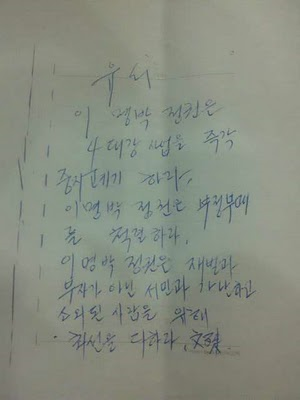 유서
이 명박 정권은
4대강 사업을 즉각
중지 폐기 하라.
이명박 정권은 부정부패
를 척결하라.
이명박 정권은 재벌과
부자가 아닌 서민과 가난하고
소외된 사람을 위해
최선을 다하라. 文殊